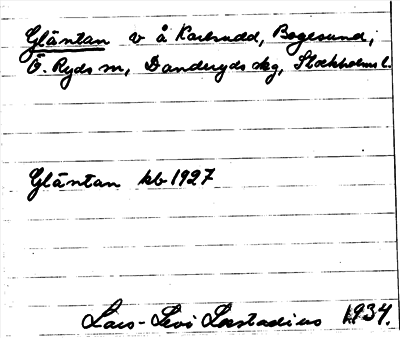 Gläntan v å Karlsudd, Bogesund,
Ö. Ryds sn, Danderyds skg, Stockholms l.
Gläntan kb 1927
Lars-Levi Læstadius 1934.